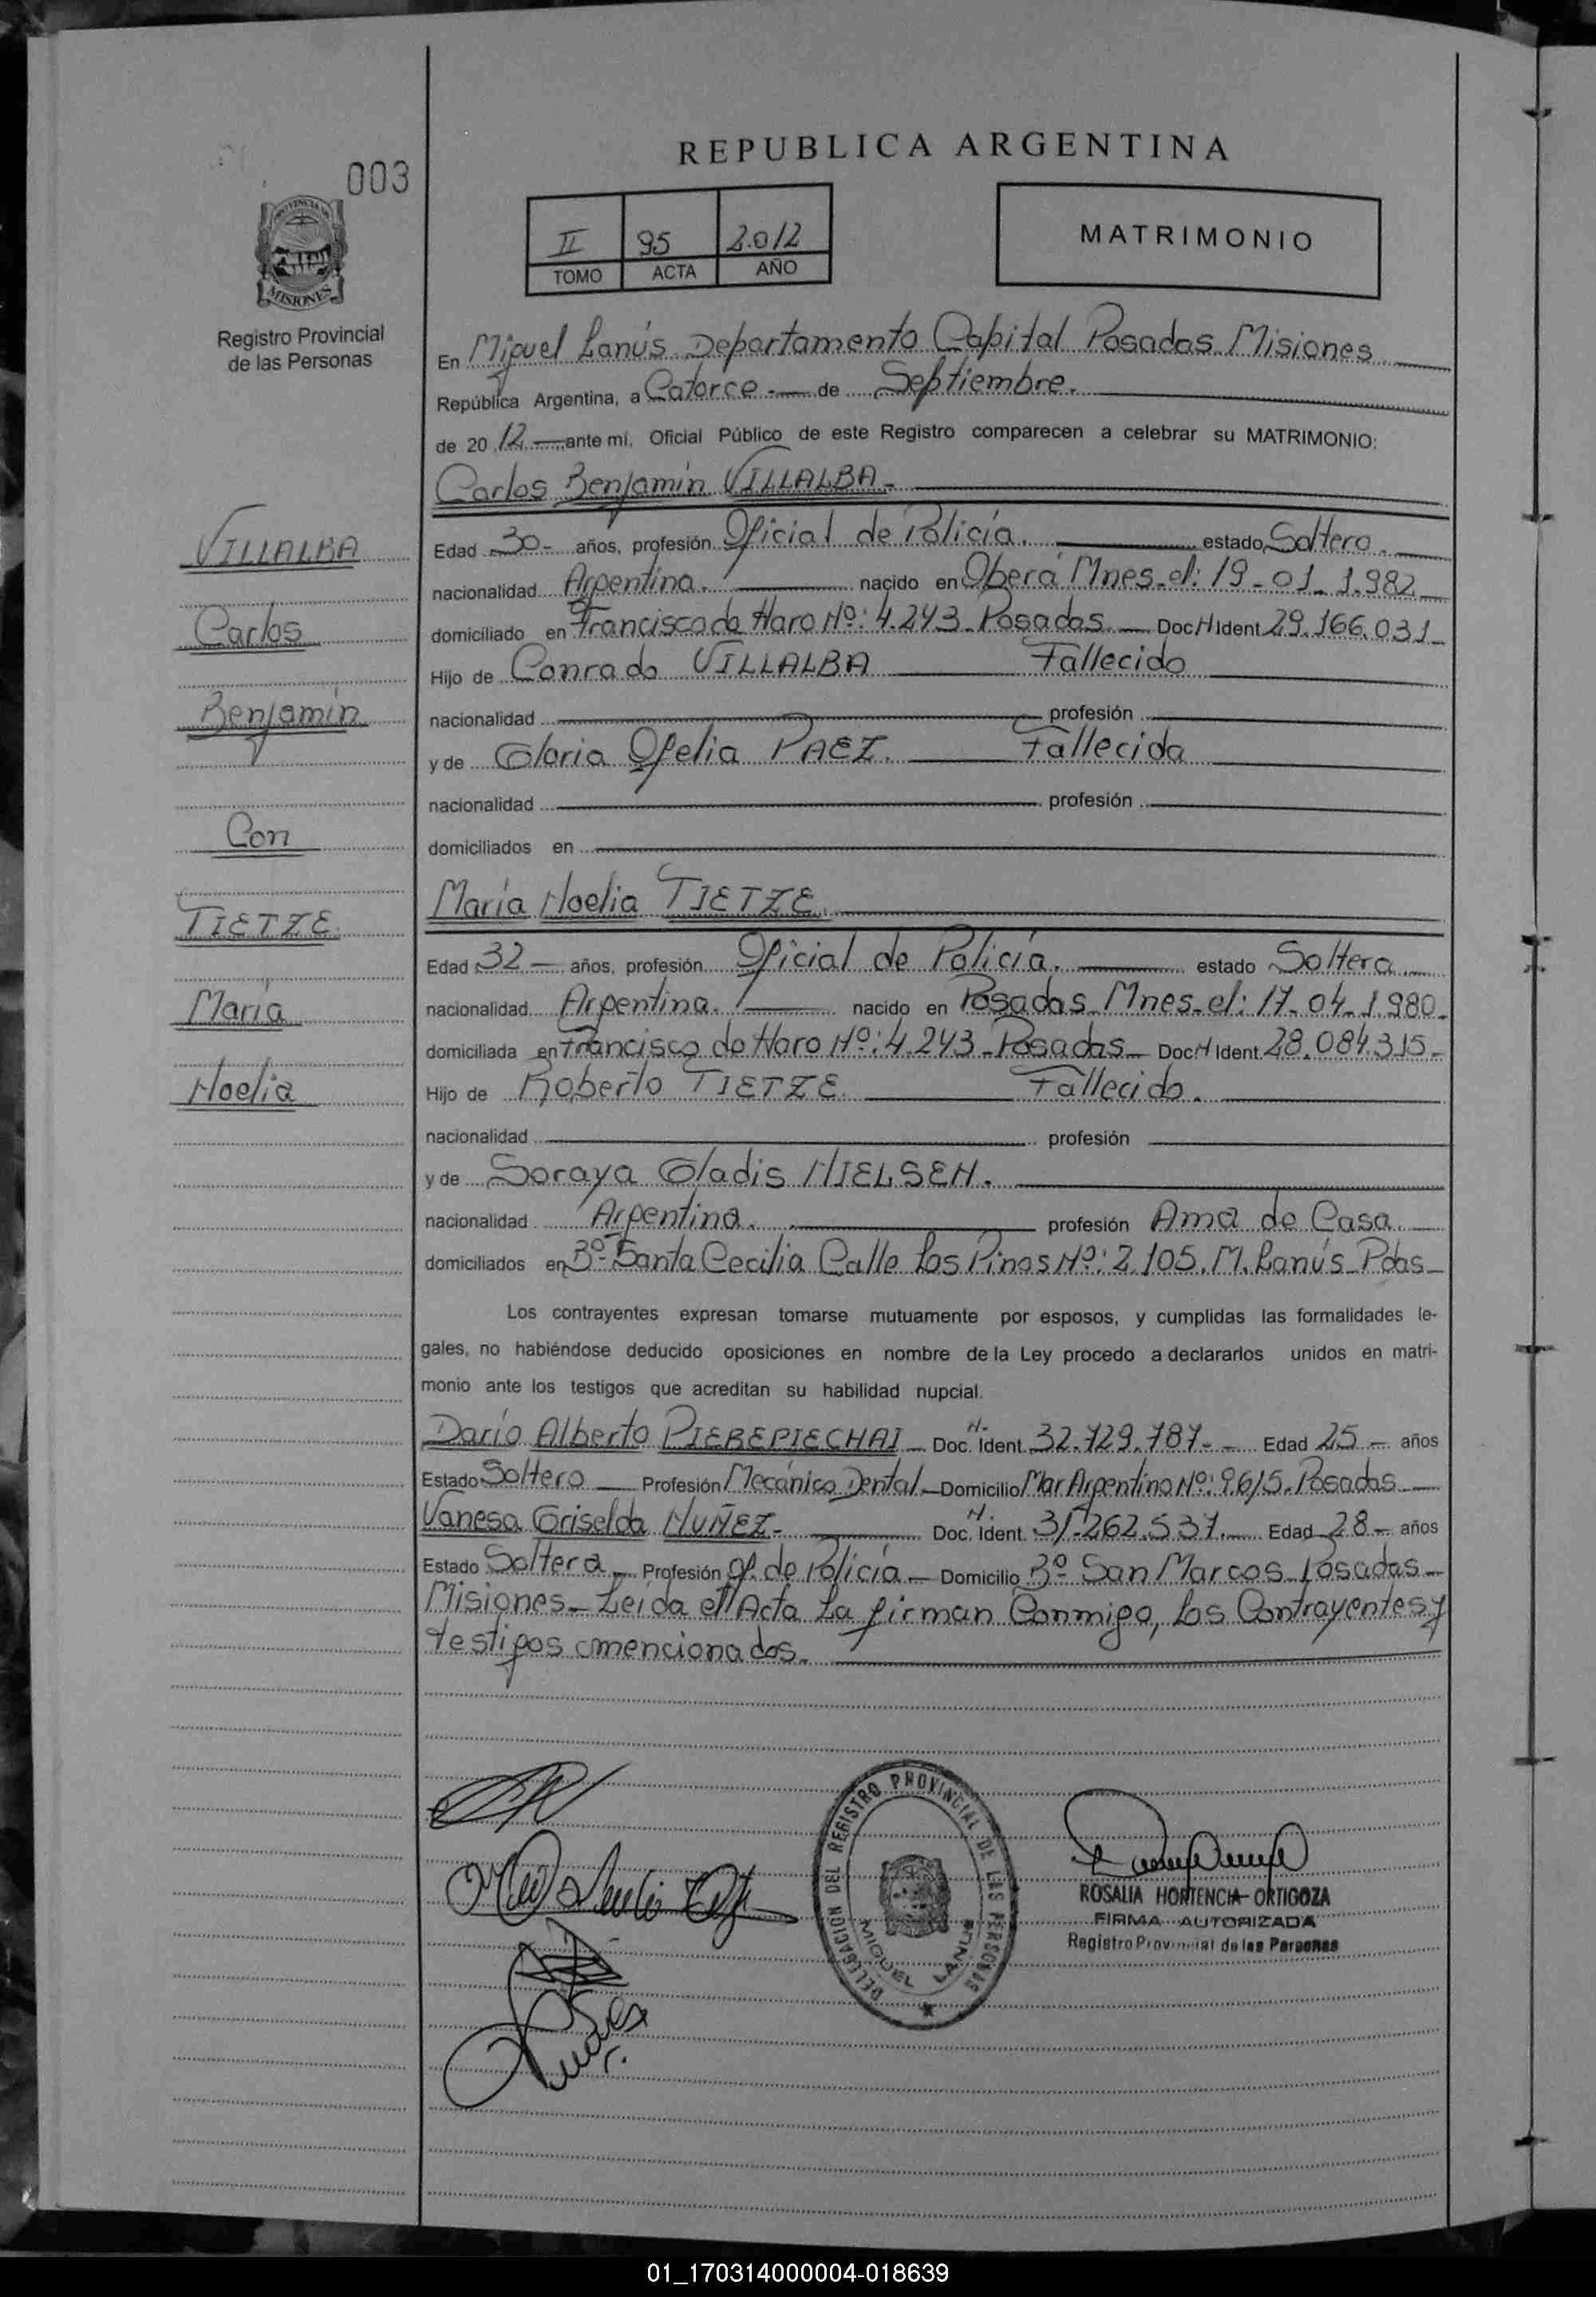 REPUBLICA ARGENTINA
003
II 95 2.012
TOMO ACTA AÑO
MATRIMONIO
PROVINCIA DE
MISIONES
Registro Provincial
de las Personas
En Miguel Lanús Departamento Capital Posadas Misiones
República Argentina, a Catorce de Septiembre.
de 20 12 ante mí, Oficial Público de este Registro comparecen a celebrar su MATRIMONIO:
Carlos Benjamin VILLALBA
Edad 30- años, profesión Oficial de Policía. estado Soltero.
nacionalidad Argentina. nacido en Oberá Mnes. el: 19-01-1.982
domiciliado en Francisco de Haro Nº: 4.243 Posadas Doc N Ident 29.166.031
Hijo de Conrado VILLALBA Fallecido
nacionalidad profesión
y de Gloria Ofelia PAEZ. Fallecida
nacionalidad profesión
domiciliados en
VILLALBA
Carlos
Benjamin
Con
TIETZE
María
Noelia
María Noelia TIETZE.
Edad 32 años, profesión Oficial de Policía. estado Soltera
nacionalidad Argentina. nacido en Posadas Mnes. el: 17-04-1.980.
domiciliada en Francisco de Haro Nº: 4.243 Posadas Doc N Ident. 28.084.315
Hijo de Roberto TIETZE. Fallecido.
nacionalidad profesión
y de Soraya Gladis NIELSEN.
nacionalidad Argentina. profesión Ama de Casa
domiciliados en Bº Santa Cecilia Calle Los Pinos Nº: 2.105. M. Lanús Pdas
Los contrayentes expresan tomarse mutuamente por esposos, y cumplidas las formalidades le-
gales, no habiéndose deducido oposiciones en nombre de la Ley procedo a declararlos unidos en matri-
monio ante los testigos que acreditan su habilidad nupcial.
Darío Alberto Doc. N. Ident. 32.729.787 Edad 25 años
Estado Soltero Profesión Mecánico Dental Domicilio Mar Argentino Nº: 9615. Posadas
Vanesa Griselda NUÑEZ Doc. N. Ident. 31.262.537. Edad 28 años
Estado Soltera Profesión of. de Policía Domicilio Bº San Marcos Posadas
Misiones. Leída el Acta La firman Conmigo, los Contrayentes y
testigos mencionados.
DELEGACION DEL REGISTRO PROVINCIAL DE LAS PERSONAS
MIGUEL LANUS
ROSALIA HORTENCIA ORTIGOZA
FIRMA AUTORIZADA
Registro Provincial de las Personas
01_170314000004-018639